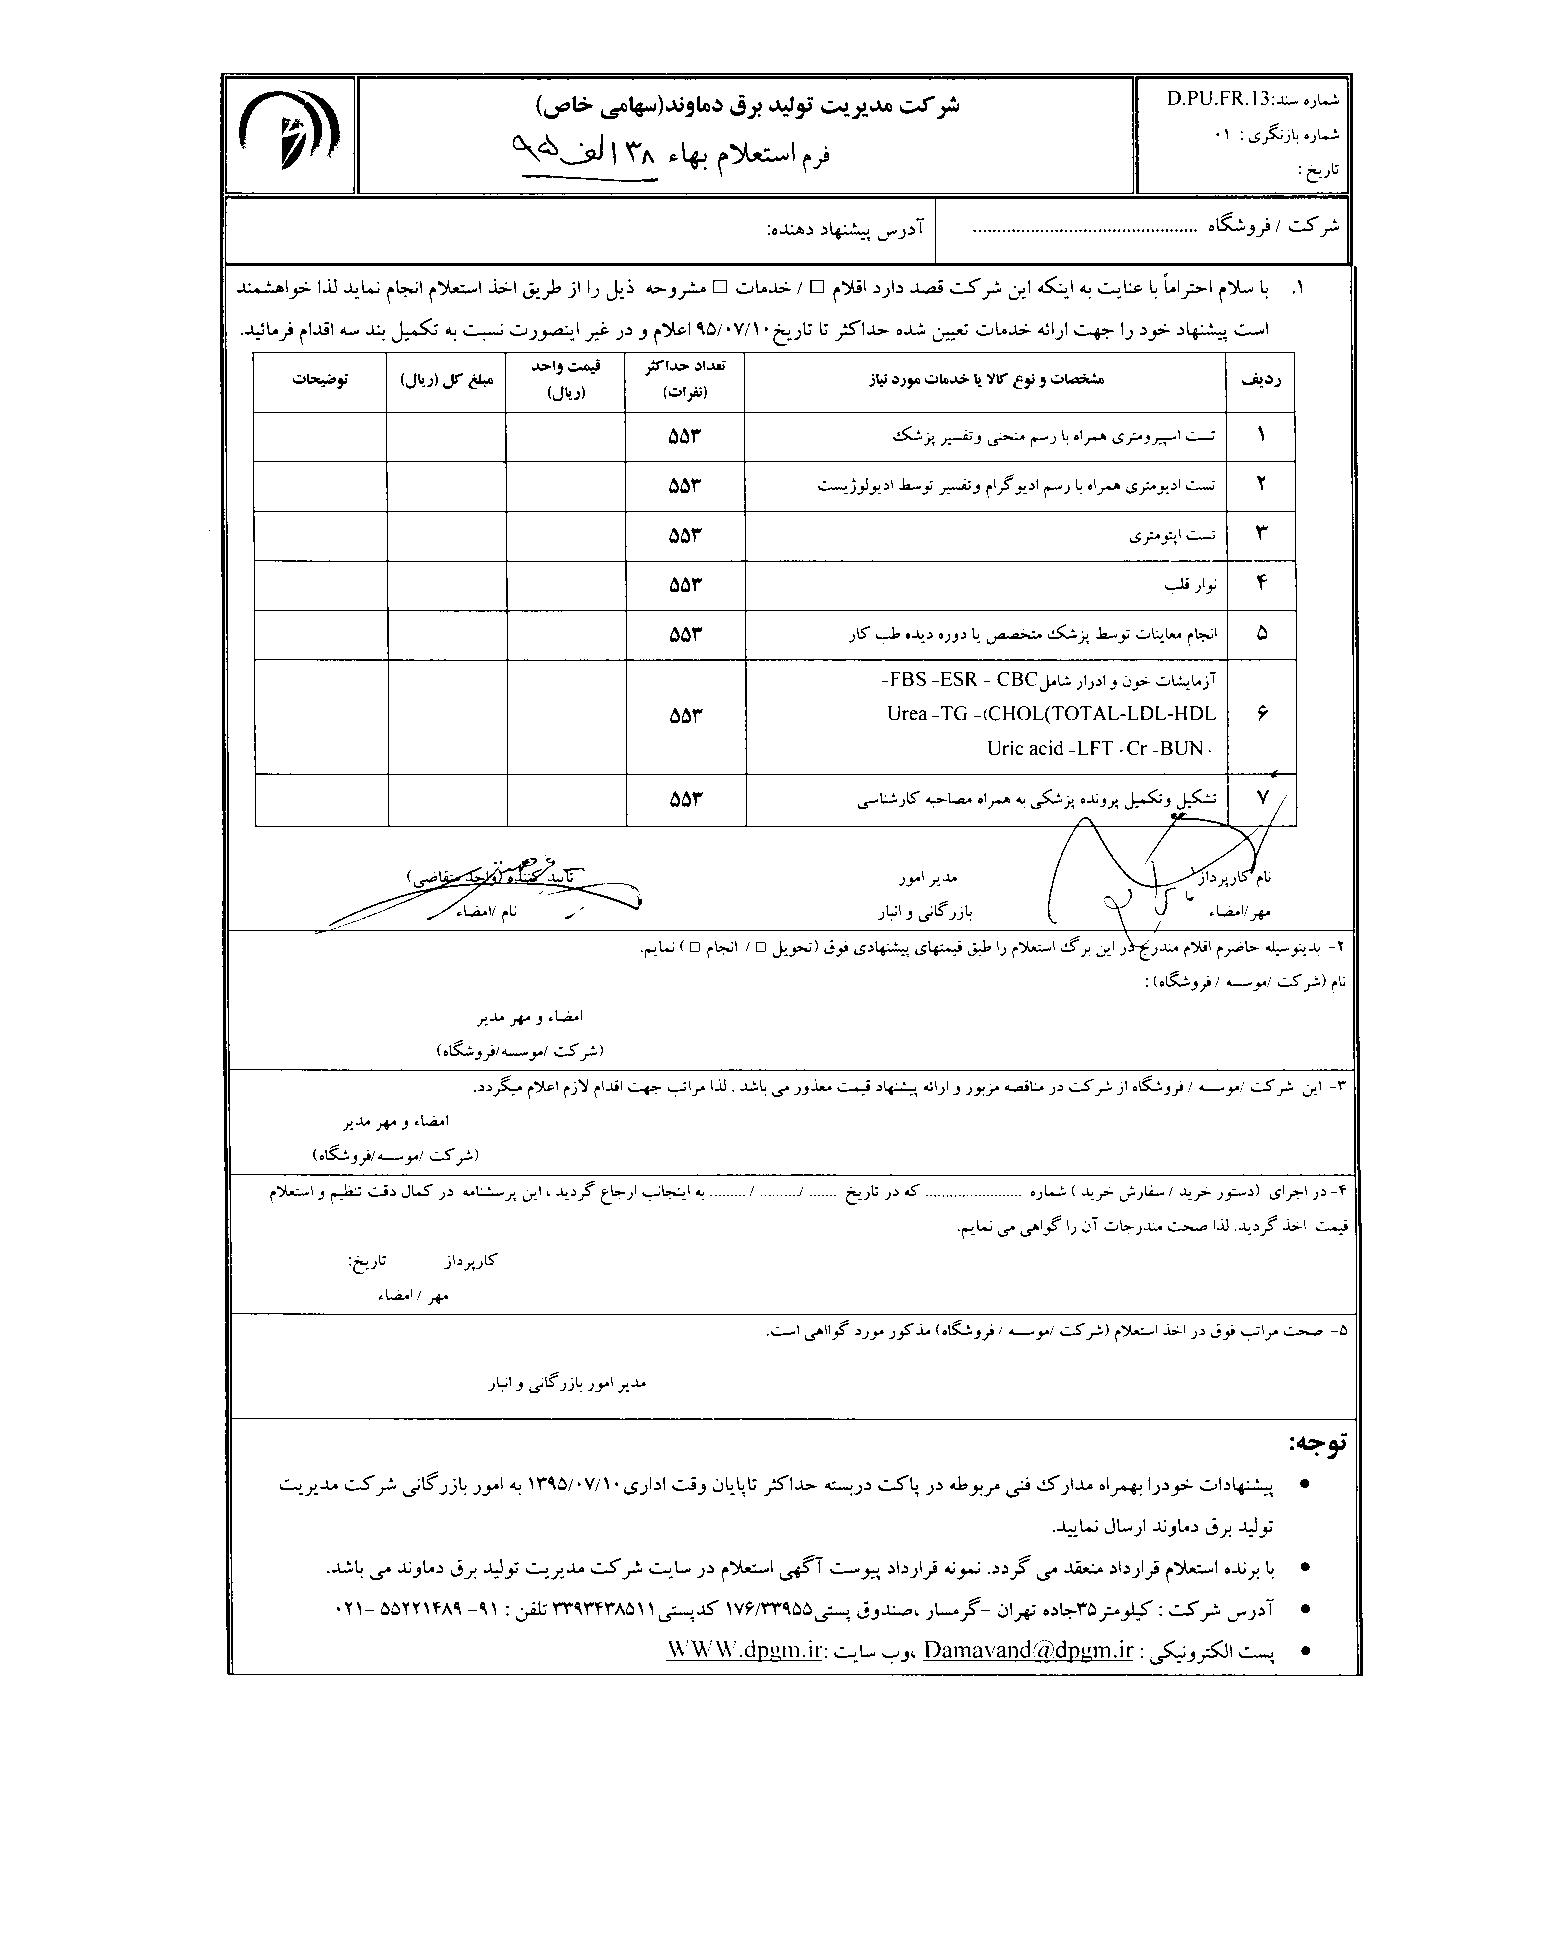 شماره سند:D.PU.FR.13
شماره بازنگری : ۰۱
تاریخ :
شرکت مدیریت تولید برق دماوند(سهامی خاص)
فرم استعلام بهاء ۱۳۸ الف ۹۵
شرکت / فروشگاه ...............................................
آدرس پیشنهاد دهنده:
۱. با سلام احتراماً با عنایت به اینکه این شرکت قصد دارد اقلام □ / خدمات □ مشروحه ذیل را از طریق اخذ استعلام انجام نماید لذا خواهشمند
است پیشنهاد خود را جهت ارائه خدمات تعیین شده حداکثر تا تاریخ۹۵/۰۷/۱۰ اعلام و در غیر اینصورت نسبت به تکمیل بند سه اقدام فرمائید.
ردیف مشخصات و نوع کالا یا خدمات مورد نیاز تعداد حداکثر (نفرات) قیمت واحد (ریال) مبلغ کل (ریال) توضیحات
۱ تست اسپیرومتری همراه با رسم منحنی وتفسیر پزشک ۵۵۳
۲ تست ادیومتری همراه با رسم ادیوگرام وتفسیر توسط ادیولوژیست ۵۵۳
۳ تست اپتومتری ۵۵۳
۴ نوار قلب ۵۵۳
۵ انجام معاینات توسط پزشک متخصص یا دوره دیده طب کار ۵۵۳
آزمایشات خون و ادرار شامل FBS –ESR – CBC-
۶ Urea –TG –(CHOL(TOTAL-LDL-HDL ۵۵۳
Uric acid –LFT - Cr –BUN -
۷ تشکیل وتکمیل پرونده پزشکی به همراه مصاحبه کارشناسی ۵۵۳
نام کارپرداز مدیر امور تایید کننده (واحد متقاضی)
مهر/امضاء بازرگانی و انبار نام /امضاء
۲- بدینوسیله حاضرم اقلام مندرج در این برگ استعلام را طبق قیمتهای پیشنهادی فوق (تحویل □ / انجام □ ) نمایم.
نام (شرکت /موسسه / فروشگاه) :
امضاء و مهر مدیر
(شرکت /موسسه/فروشگاه)
۳- این شرکت /موسسه / فروشگاه از شرکت در مناقصه مزبور و ارائه پیشنهاد قیمت معذور می باشد . لذا مراتب جهت اقدام لازم اعلام میگردد.
امضاء و مهر مدیر
(شرکت /موسسه/فروشگاه)
۴- در اجرای (دستور خرید / سفارش خرید ) شماره ...................... که در تاریخ ...... /......... /......... به اینجانب ارجاع گردید ، این پرسشنامه در کمال دقت تنظیم و استعلام
قیمت اخذ گردید. لذا صحت مندرجات آن را گواهی می نمایم.
کارپرداز تاریخ:
مهر / امضاء
۵- صحت مراتب فوق در اخذ استعلام (شرکت /موسسه / فروشگاه) مذکور مورد گوااهی است.
مدیر امور بازرگانی و انبار
توجه:
• پیشنهادات خودرا بهمراه مدارک فنی مربوطه در پاکت دربسته حداکثر تاپایان وقت اداری۱۳۹۵/۰۷/۱۰ به امور بازرگانی شرکت مدیریت
تولید برق دماوند ارسال نمایید.
• با برنده استعلام قرارداد منعقد می گردد. نمونه قرارداد پیوست آگهی استعلام در سایت شرکت مدیریت تولید برق دماوند می باشد.
• آدرس شرکت : کیلومتر۳۵جاده تهران –گرمسار ،صندوق پستی۱۷۶/۳۳۹۵۵ کدپستی۳۳۹۳۴۳۸۵۱۱ تلفن : ۹۱- ۵۵۲۲۱۴۸۹ –۰۲۱
• پست الکترونیکی : Damavand@dpgm.ir ،وب سایت :WWW.dpgm.ir